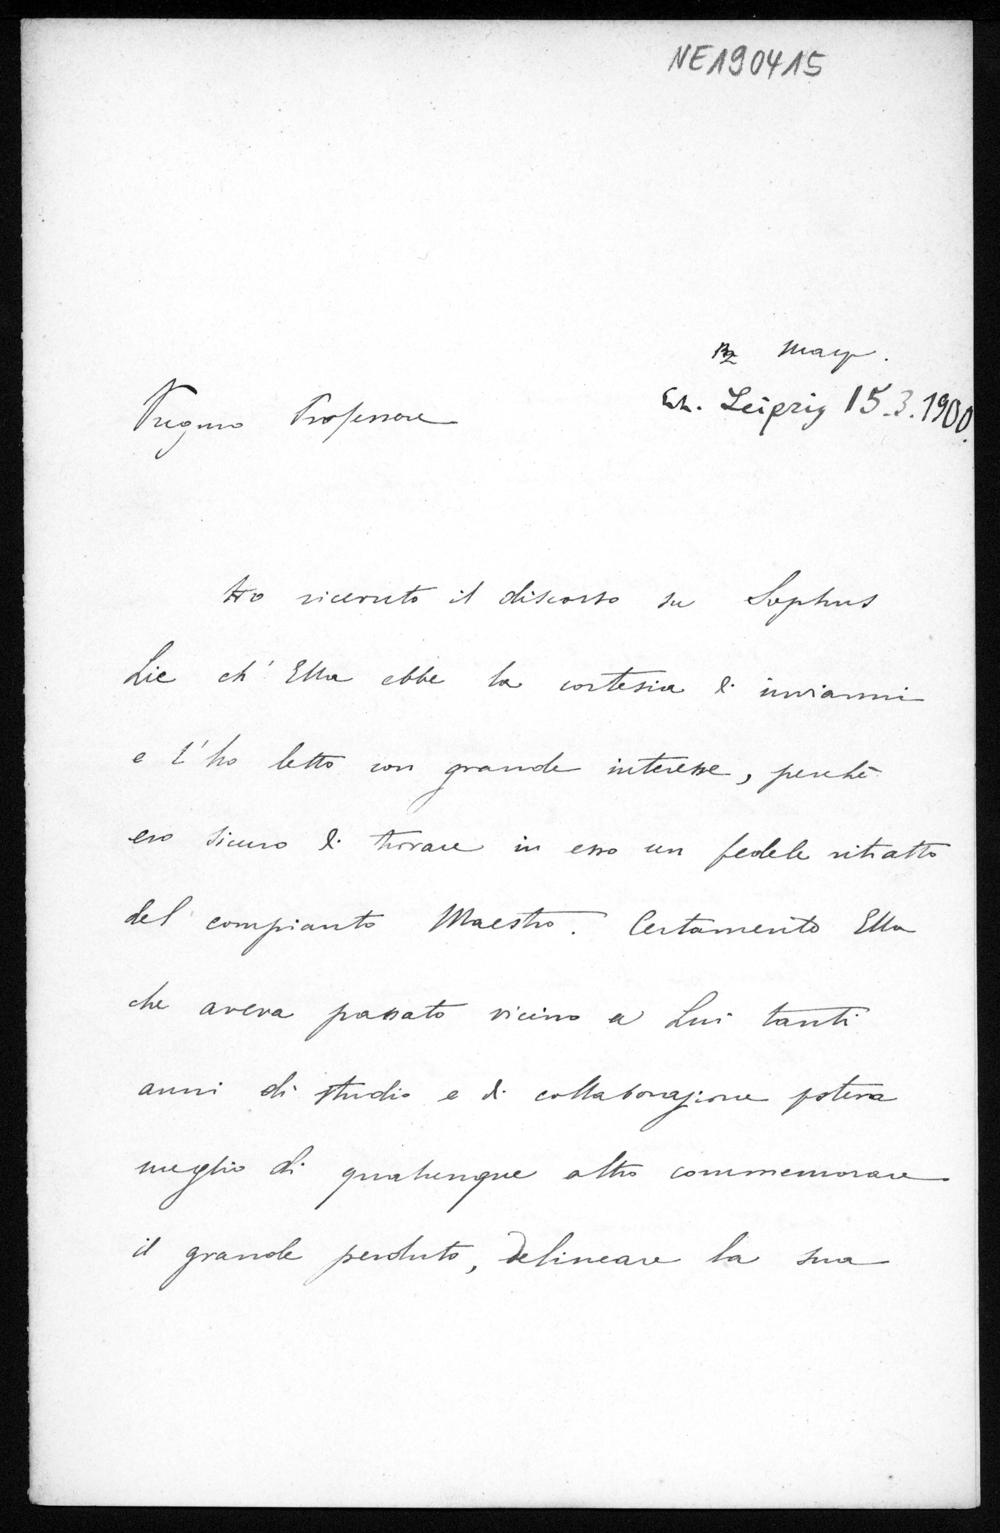 NE190415
Marzo.
Eh. Leipzig 15.3.1900.
Pregmo Professore
Ho ricevuto il discorso su Sophus
Lie ch' Ella ebbe la cortesia di inviarmi
e l'ho letto con grande interesse, perchè
ero sicuro di trovare in esso un fedele ritratto
del compianto Maestro. Certamente Ella
che aveva passato vicino a Lui tanti
anni di studio e di collaborazione poteva
meglio di qualunque altro commemorare
il grande perduto, delineare la sua